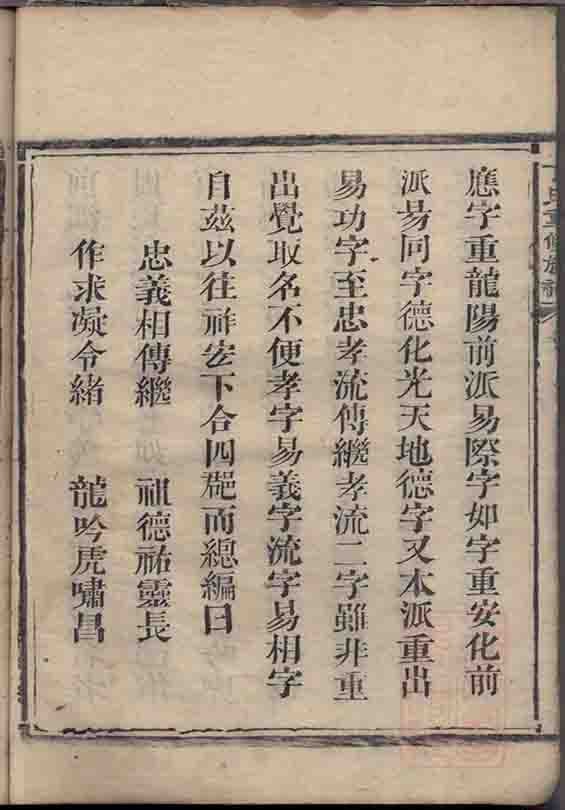 應字重龍陽前派易際字如字重安化前
派易同字德化光天地德字又本派重出
易功字至忠孝流傳繼孝流二字雖非重
出覺取名不便孝字易義字流字易相字
自茲以往祥宏下合四邑而總編曰
忠義相傳繼　祖德祐靈長
作求凝令緒　龍吟虎嘯昌